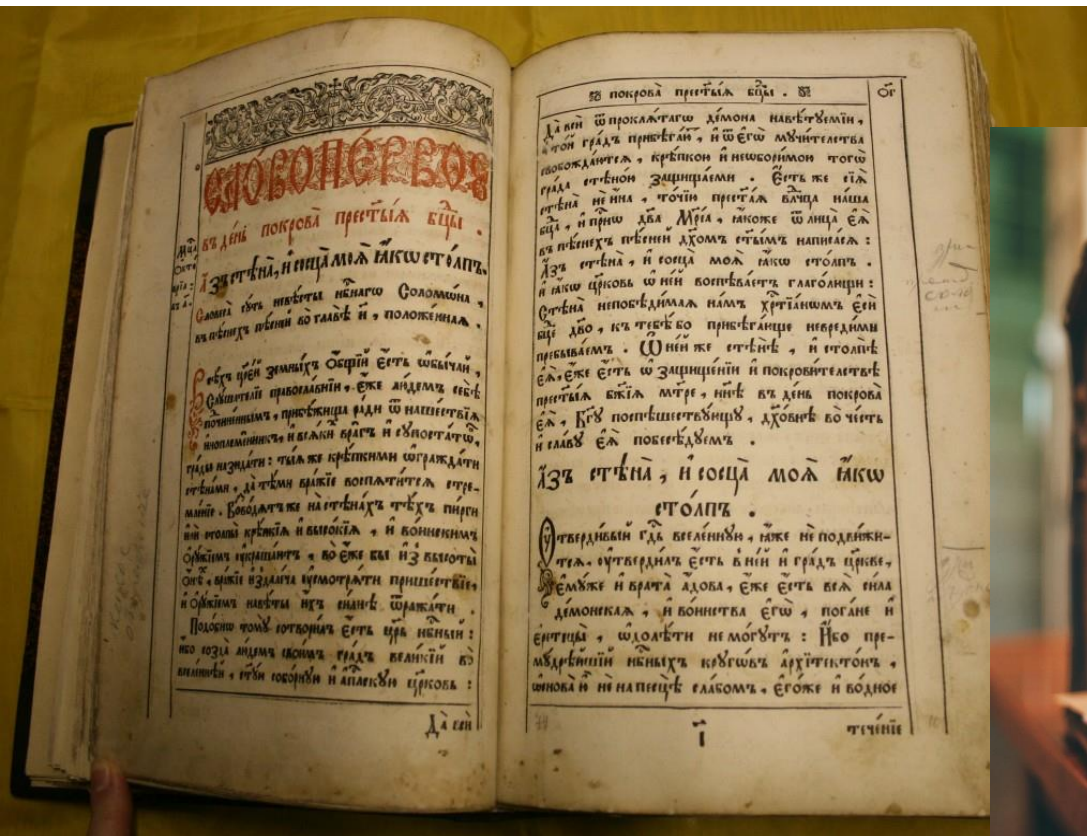 СЛОВО ПЕРВОЕ
въ де́нь покрова̀ престы́ѧ бцⷣы .
Мцⷭа
Окто́
врїа :
въ а҃ .
А҆́зъ стѣна̀, и҆ сосца̀ моѧ̀ ꙗ҆́кѡ сто́лпъ.
Словеса̀ сꙋ́ть невѣ́сты нб҃нагѡ Соломѡ́на ,
въ пѣ́снехъ пѣ́сней во главѣ̀ и҃ , положе́ннаѧ .
Всѣ́хъ црⷭе́й земны́хъ О҆́бщїй є҆́сть ѡ҆бы́чай ,
Слы́шателїе правосла́внїи , є҆́же лю́демъ себѣ̀
подчине́ннымъ , прибѣ́жища ра́ди ѿ наше́ствїѧ
и҆ноплеме́нникъ , и҆ всѧ́ки вра́гъ и҆ сꙋпоста́тѡ ,
гра́ды назида́ти : ты́ѧ же крѣ́пкими ѡ҆гражда́ти
стѣна́ми , да̀ тѣ́ми вра́жїе воспѧти́тсѧ стре-
мле́нїе . Возво́дѧтъ же на стѣна́хъ тѣ́хъ пи́рги
и҆лѝ столпы̀ крѣ́пкїѧ и҆ высо́кїѧ , и҆ во́инскимъ
Ѻ҆рꙋ́жїемъ ᲂу҆краша́ютъ , во є҆́же бы и҆з̾ высоты̀
Ѻ҆нѣ̀ , вра́жїе и҆здале́ча ᲂу҆смотрѧ́ти прише́ствїе,
и҆ Ѻ҆рꙋ́жїемъ навѣ́ты и҆́хъ си́лнѣ ѿража́ти .
Подо́бнѡ томꙋ̀ сотвори́лъ є҆́сть цр҃ь нб҃ный :
и҆́бо созда̀ лю́демъ свои̑мъ гра́дъ вели́кїй во
вселе́ннѣй , ст҃ꙋ́ю собо́рнꙋю и҆ а҆пⷭ́лскꙋю цр҃ковь :
Да̀ всѝ
покрова̀ престы́ѧ бцⷣы .
ѻ҃г
Да̀ всѝ ѿ проклѧ́тагѡ де́мона навѣ́тꙋемїи ,
в̾ то́й гра́дъ прибѣга́й , и҆ ѿ є҆гѡ̀ мꙋчи́телства
свобожда́ютсѧ , крѣ́пкою и҆ неѡбори́мою тогѡ̀
гра́да стѣно́ю защища́еми . Є҆́сть же сїѧ̀
стѣна̀ не и҆́на , то́чїю прест҃а́ѧ влⷣчца на́ша
бцⷣа , и҆ прⷭнѡ дв҃а Мр҃і́а , ꙗ҆́коже ѿ лица̀ є҆ѧ̀
въ пѣ́снехъ пѣ́сней дх҃омъ ст҃ы́мъ написасѧ :
А҆́зъ стѣна̀ , и҆ сосца̀ моѧ̀ ꙗ҆́кѡ сто́лпъ .
И҆ ꙗ҆́кѡ цр҃ковь ѡ҆ не́й воспѣва́етъ глаго́лющи :
Стѣна̀ непобѣди́маѧ на́мъ хрⷭтїа́нѡмъ є҆сѝ
бцⷣе дв҃о , къ тебѣ́ бо прибѣга́юще невреди́ми
пребыва́емъ . Ѡ҆ не́й же стѣнѣ̀ , и҆ столпѣ̀
є҆ѧ̀, є҆́же є҆́сть ѡ҆ защище́нїи и҆ покрови́телствѣ
прест҃ы́ѧ бж҃їѧ мт҃ре , нн҃ѣ въ де́нь покрова̀
є҆ѧ̀ , Бг҃ꙋ поспѣ́шествꙋющꙋ , дх҃о́внѣ во че́сть
и҆ сла́вꙋ є҆ѧ̀ побесѣ́дꙋемъ .
А҆́зъ стѣна̀ , и҆ сосца̀ моѧ̀ ꙗ҆́кѡ
сто́лпъ .
Оу҆тверди́вый гдⷭь вселе́ннꙋю , ꙗ҆́же не подви́жи-
тсѧ , ᲂу҆тверди́лъ є҆́сть в̾ не́й и҆ гра́дъ цр҃кве ,
є҆мꙋ́же и҆ врата̀ а҆́дова , є҆́же є҆́сть всѧ̀ си́ла
де́монскаѧ , и҆ во́инства є҆гѡ̀ , пога́не и҆
є҆ретїцы̀ , ѡ҆долѣ́ти не мо́гꙋтъ : И҆́бо пре-
мꙋ́дрѣйшїй нб҃ныхъ крꙋгѡ́въ а҆рхїте́ктонъ ,
ѡ҆снова̀ ю҆̀ не на песцѣ̀ сла́бомъ , є҆го́же и҆ во́дное
тече́нїе